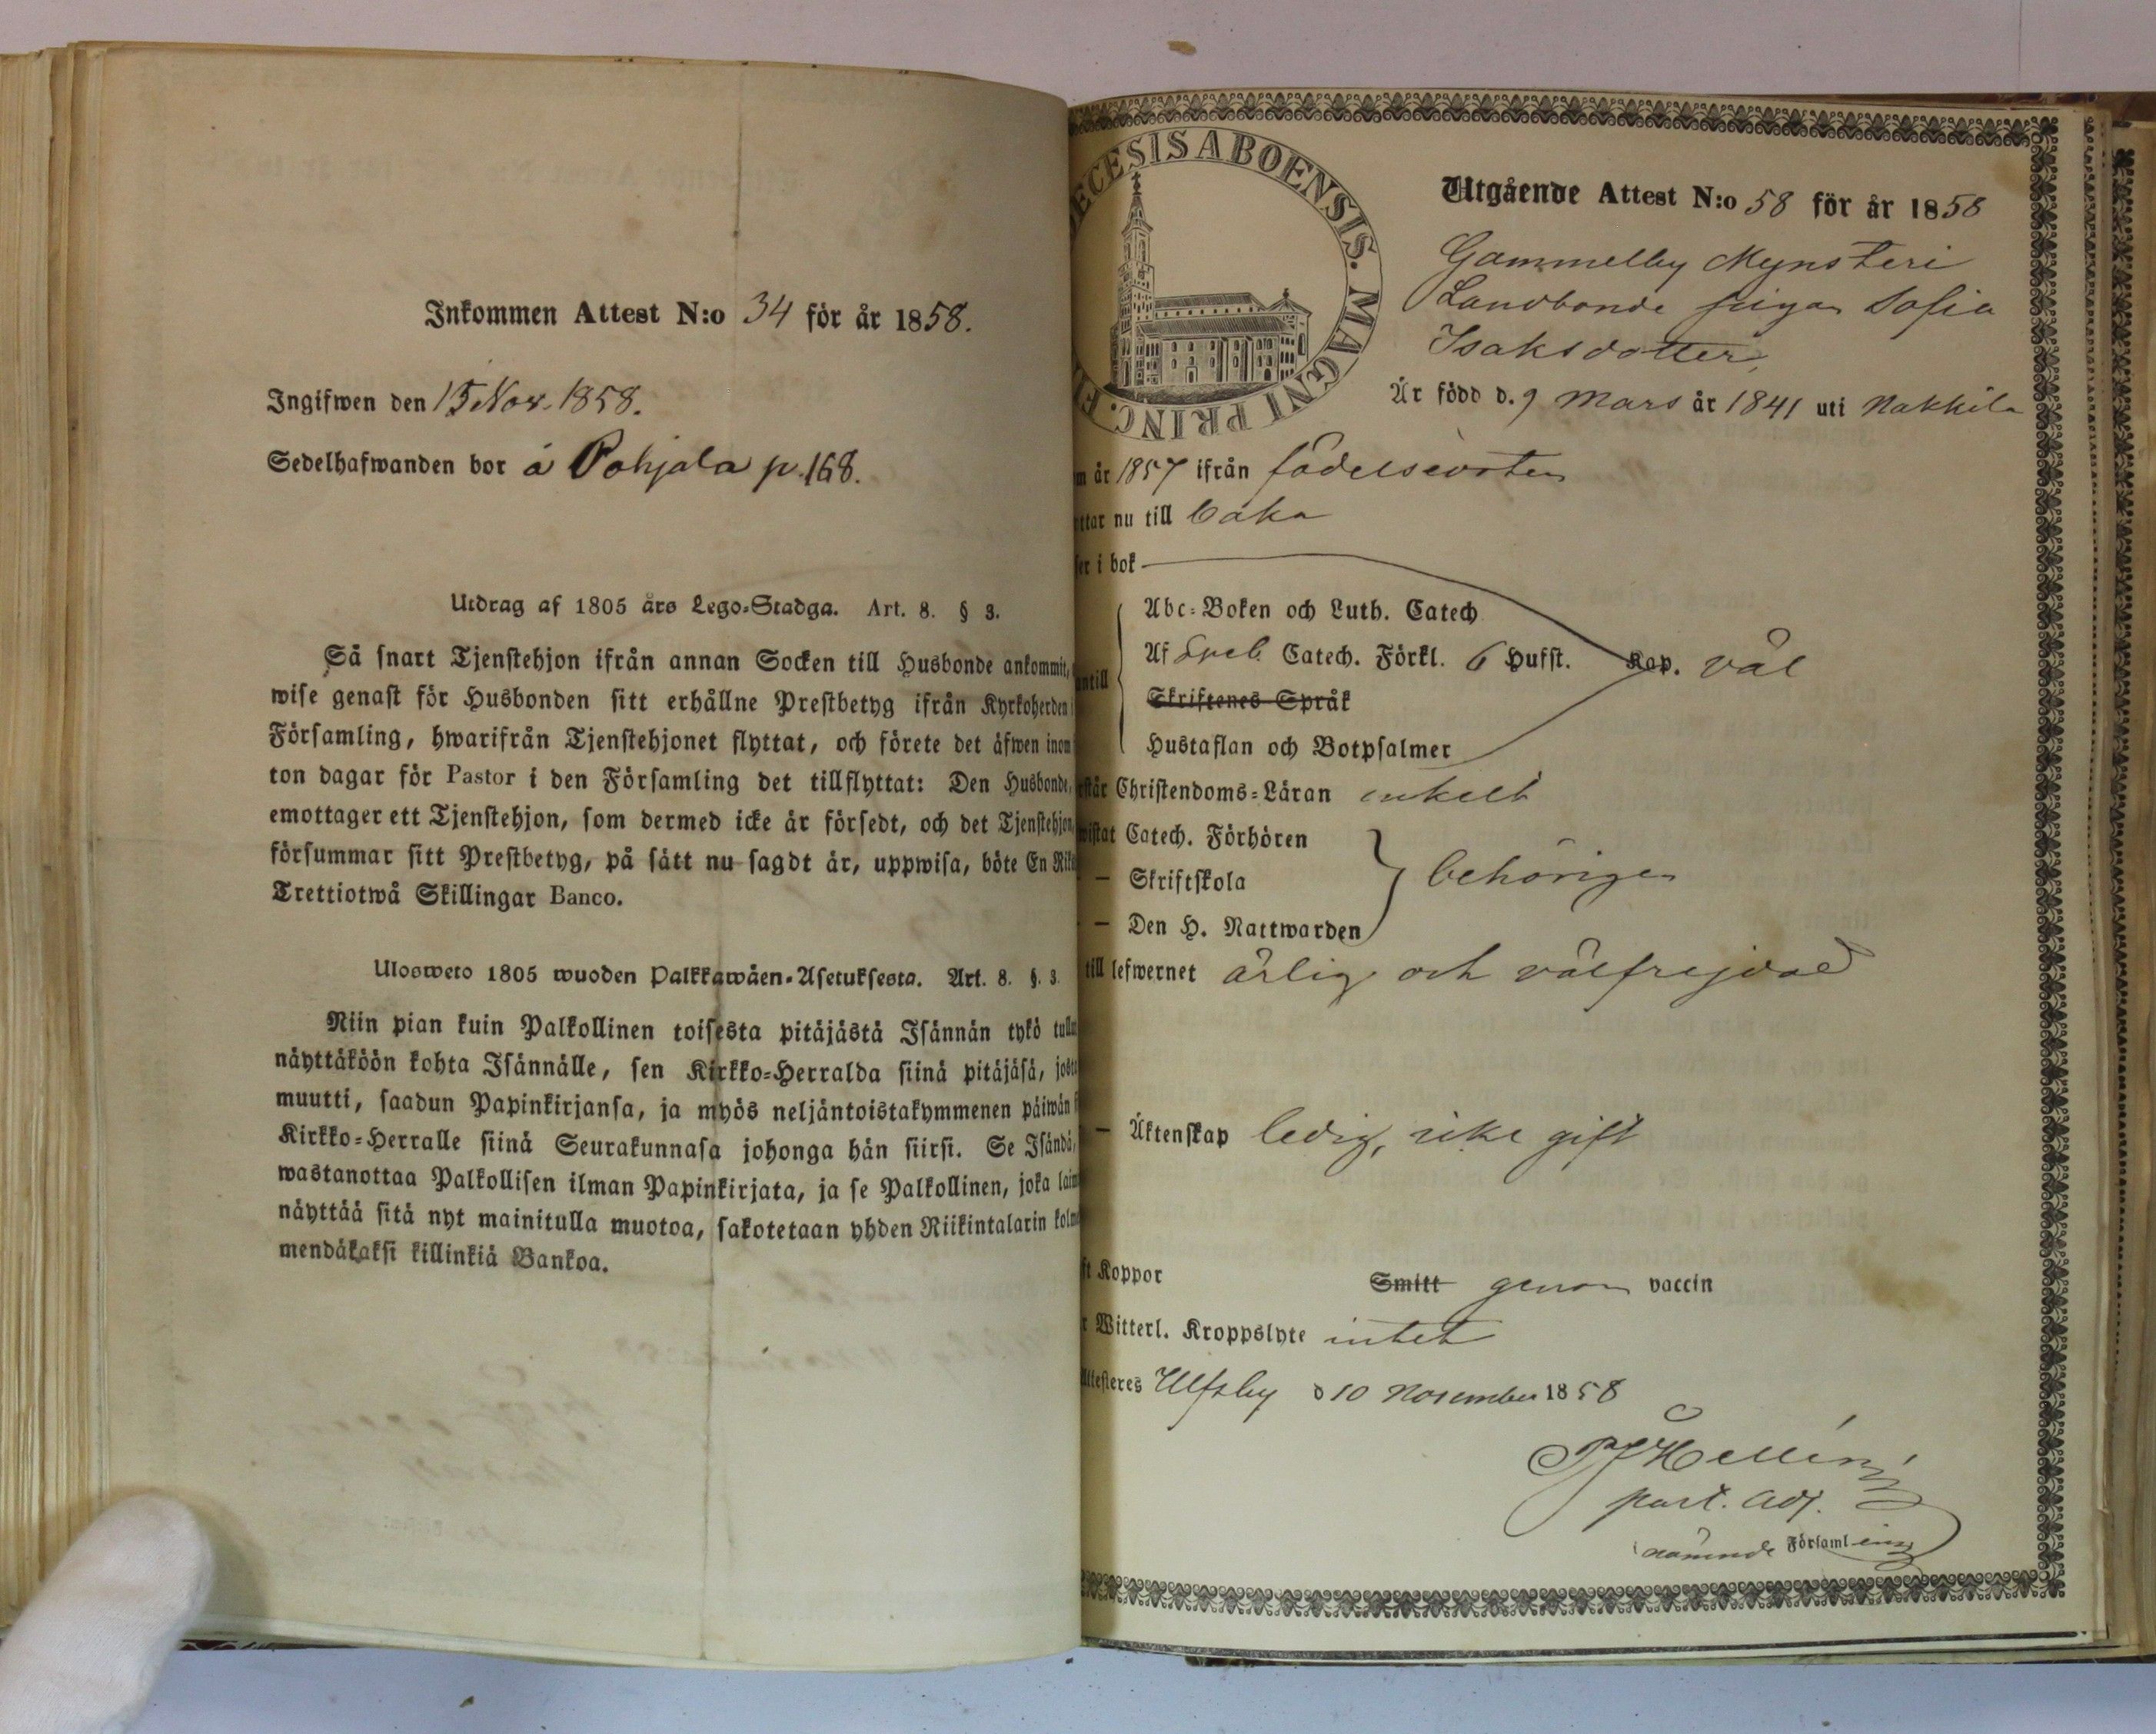 Inkommen Attest N:o 34 för år 1858.
Ingifwen den 15 Nov. 1858.
Sedelhafwanden bor å Pohjala p. 168.
Utdrag af 1805 års Lego-Stadga. Art. 8. § 3.
Så snart Tjenstehjon ifrån annan Socken till Husbonde ankommit,
wise genast för Husbonden sitt erhållne Prestbetyg ifrån Kyrkoherden i
Församling, hwarifrån Tjenstehjonet flyttat, och förete det äfwen inom
ton dagar för Pastor i den Församling det tillflyttat: Den Husbonde,
emottager ett Tjenstehjon, som dermed icke är försedt, och det Tjenstehjon,
försummar sitt Prestbetyg, på sätt nu sagdt är, uppwisa, böte En Rik
Trettiotwå Skillingar Banco.
Ulosweto 1805 wuoden Palkkawäen-Asetuksesta. Art. 8. §. 3.
Niin pian kuin Palkollinen toisesta pitäjästä Isännän tykö tullu
näyttäköön kohta Isännälle, sen Kirkko-Herralda siinä pitäjäsä, josta
muutti, saadun Papinkirjansa, ja myös neljäntoistakymmenen päiwän
Kirkko-Herralle siinä Seurakunnasa johonga hän siirsi. Se Isändä,
wastanottaa Palkollisen ilman Papinkirjata, ja se Palkollinen, joka laim
näyttää sitä nyt mainitulla muotoa, sakotetaan yhden Riikintalarin kolm
mendäkaksi killinkiä Bankoa.
ECESIS ABOENSIS. MAGNI PRINC. F
Utgående Attest N:o 58 för år 1858
Gammelby Mynsteri
Landbonde pigan Sofia
Isaksdotter,
Är född d. 9 Mars år 1841 uti Nakkila
m år 1857 ifrån födelseorten
ttar nu till baka
ser i bok
Abc-Boken och Luth. Catech
Af Sveb. Catech. Förkl. 6 Hufst. Kap. väl
ntill
Skriftenes Språk
Hustaflan och Botpsalmer
står Christendoms-Läran enkelt
wistat Catech. Förhören
— Skriftskola behörigen
— Den H. Nattwarden
till lefwernet ärlig och välfrejdad
— Äktenskap ledig, icke gift
ft Koppor Smitt genom vaccin
r Witterl. Kroppslyte intet
Attesteres Ulfsby d 10 November 1858
Hellén
past. adj.
nämnde Församling